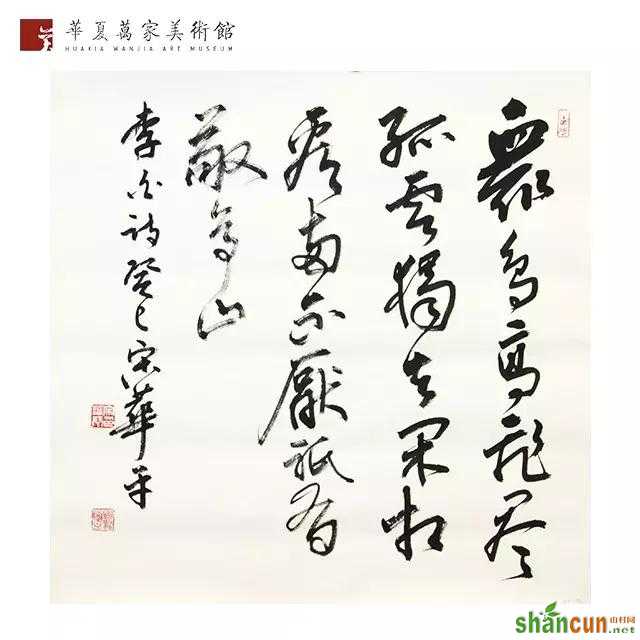 華夏萬家美術館
HUAXIA WANJIA ART MUSEUM
眾鳥高飛尽
孤雲獨去閑相
看兩不厭祇有
敬亭山
李白詩癸巳宋華平
shancun 山村网
.net